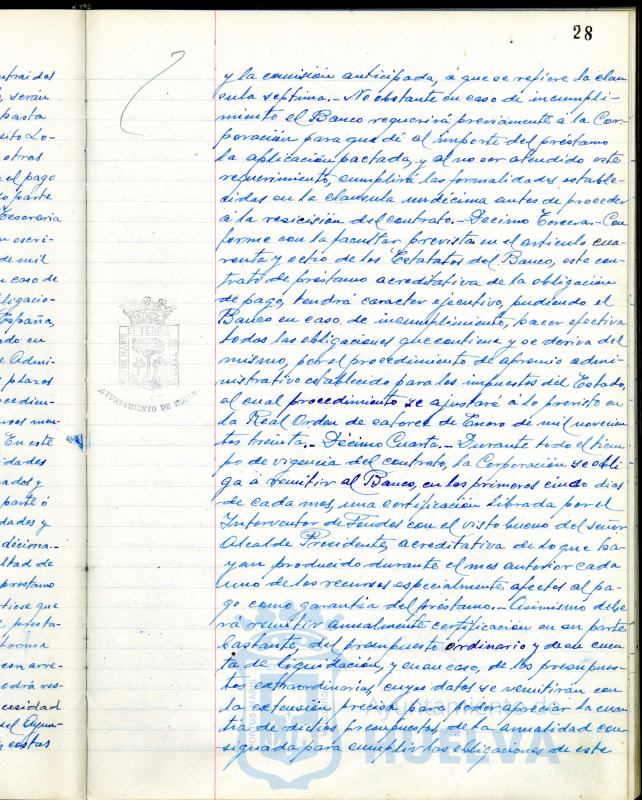 28
ntraidos
serán
pasta
dito Lo-
otras
el pago
parte
Tesoreria
escri-
de mil
caso de
ligacio-
España,
ado en
Admi-
plazos
cedimi-
rsos men-
En este
idades
ados y
parte ó
dades y
décima.-
ltad de
prestamo
tiese que
presta-
forma
con arre-
edrá res-
ensidad
del Ayun-
costas
y la comisión anticipada, á que se refiere la clau
sula septima.- No obstante en caso de incumpli-
miento el Banco requerirá previamente á la Cor-
poración para que dé al importe del préstamo
la aplicación pactada, y al no ser atendido este
requerimiento, cumplirá las formalidades estable-
cidas en la clausula undécima antes de proceder
á la rescisión del contrato.- Decimo Tercera.- Con
forme con la facultar prevista en el articulo cua
renta y octio de los Estatatos del Banco, este con-
trato de préstamo acreditativa de la obligación
de pago, tendrá caracter ejecutivo, pudiendo el
Banco en caso de incumplimiento, hacer efectiva
todas las obligaciones que contiene y se deriva del
mismo, por el procedimiento de apremio admi-
nistrativo establecido para los impuestos del Estado,
el cual procedimiento se ajustará á lo previsto en
la Real Orden de catorce de Enero de mil novecien
tos treinta.- Décimo Cuarta.- Durante todo el tiem-
po de vigencia del contrato, la Corporación se obli
ga á remitir al Banco, en los primeros cinco dias
de cada mes, una certificación librada por el
Interventor de Fondos con el visto bueno del señor
Alcalde Presidente, acreditativa de lo que ha-
yan producido durante el mes anterior cada
uno de los recursos especialmente afectos al pa-
go como garantia del préstamo.- Asimismo debe
rá remitir anualmente certificación en su parte
bastante, del presupuesto ordinario y de su cuen
ta de liquidación, y en su caso, de los presupues-
tos extraordinarios, cuyos datos se remitirán con
la extensión precisa para poder apreciar la cuan
tia de dichos presupuestos, de la anualidad con-
signada para cumplir las obligaciones de este
AYUNTAMIENTO DE HUELVA
HUELVA